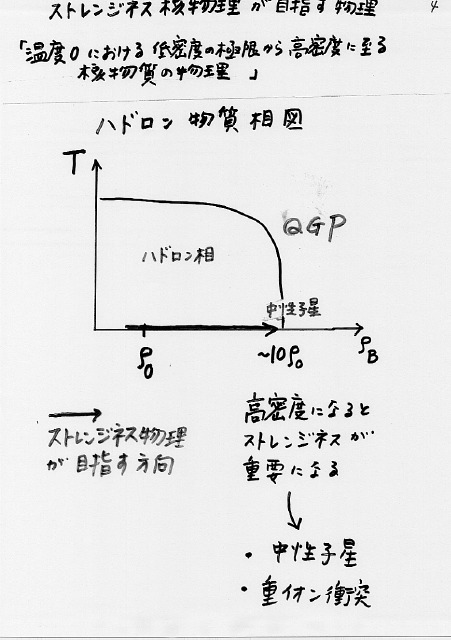 ストレンジネス核物理が目指す物理
4
「温度0における低密度の極限から高密度に至る
核物質の物理 」
ハドロン物質相図
T
QGP
ハドロン相
中性子星
ρ0
~10ρ0
ρB
ストレンジネス物理
が目指す方向
高密度になると
ストレンジネスが
重要になる
・中性子星
・重イオン衝突